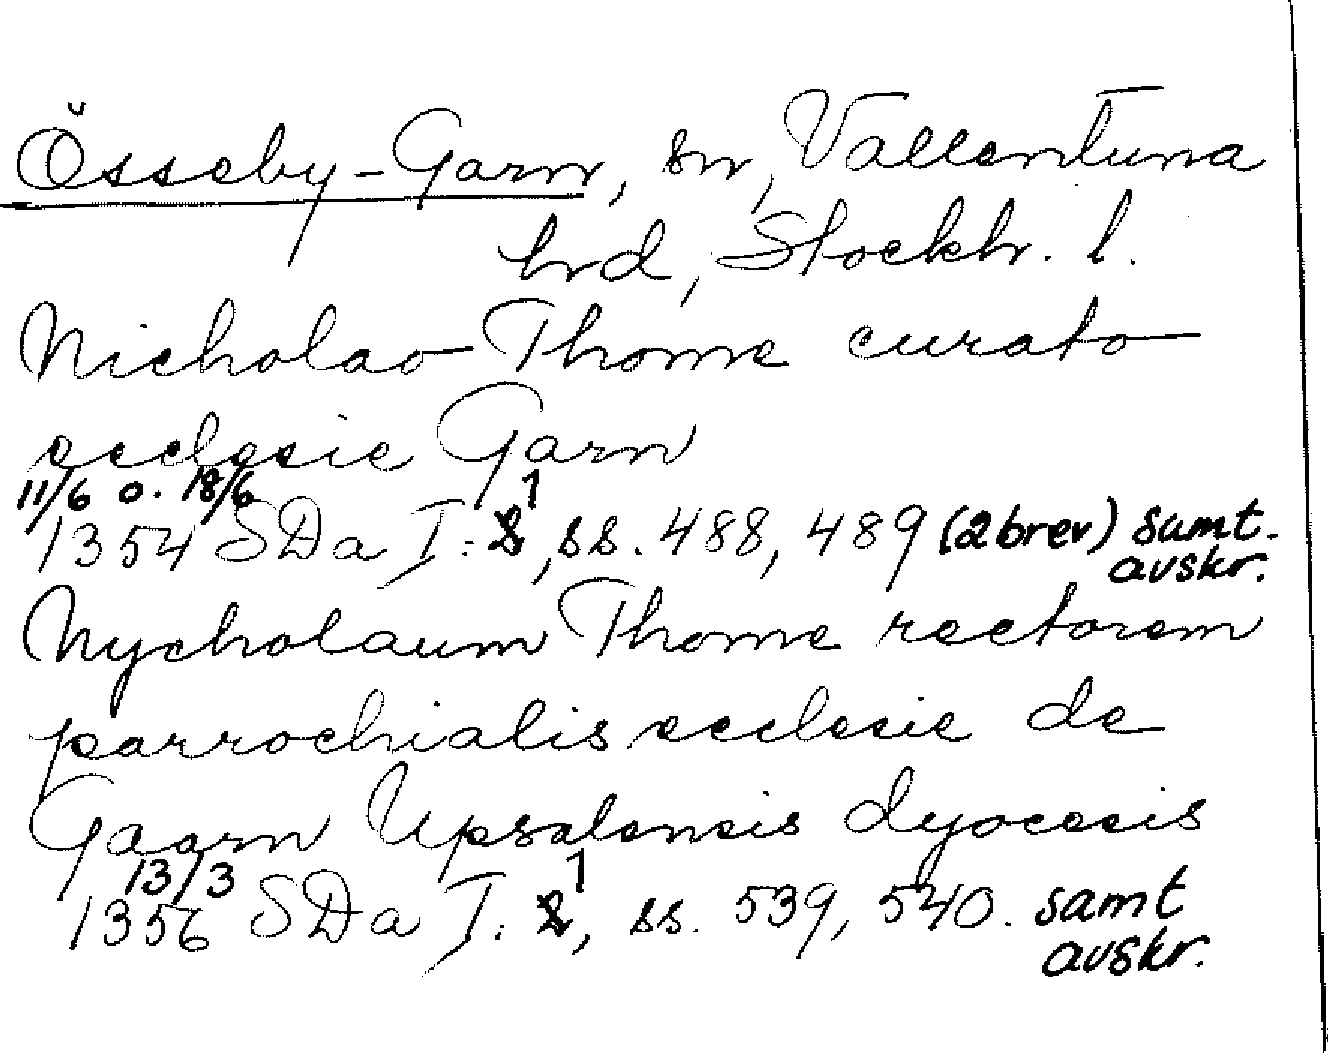 Össeby-Garn, sn, Vallentuna
hrd, Stockh. l.
Nicholao Thome curato
ecclesie Garn
11/6 o. 18/6 1
1354 SDa I:2, ss. 488, 489 (2 brev) samt.
avskr.
Nycholaum Thome rectorem
parrochialis ecclesie de
Gaarn Upsalensis dyocesis
13/3 1
1356 SDa I:2, ss. 539, 540. samt
avskr.